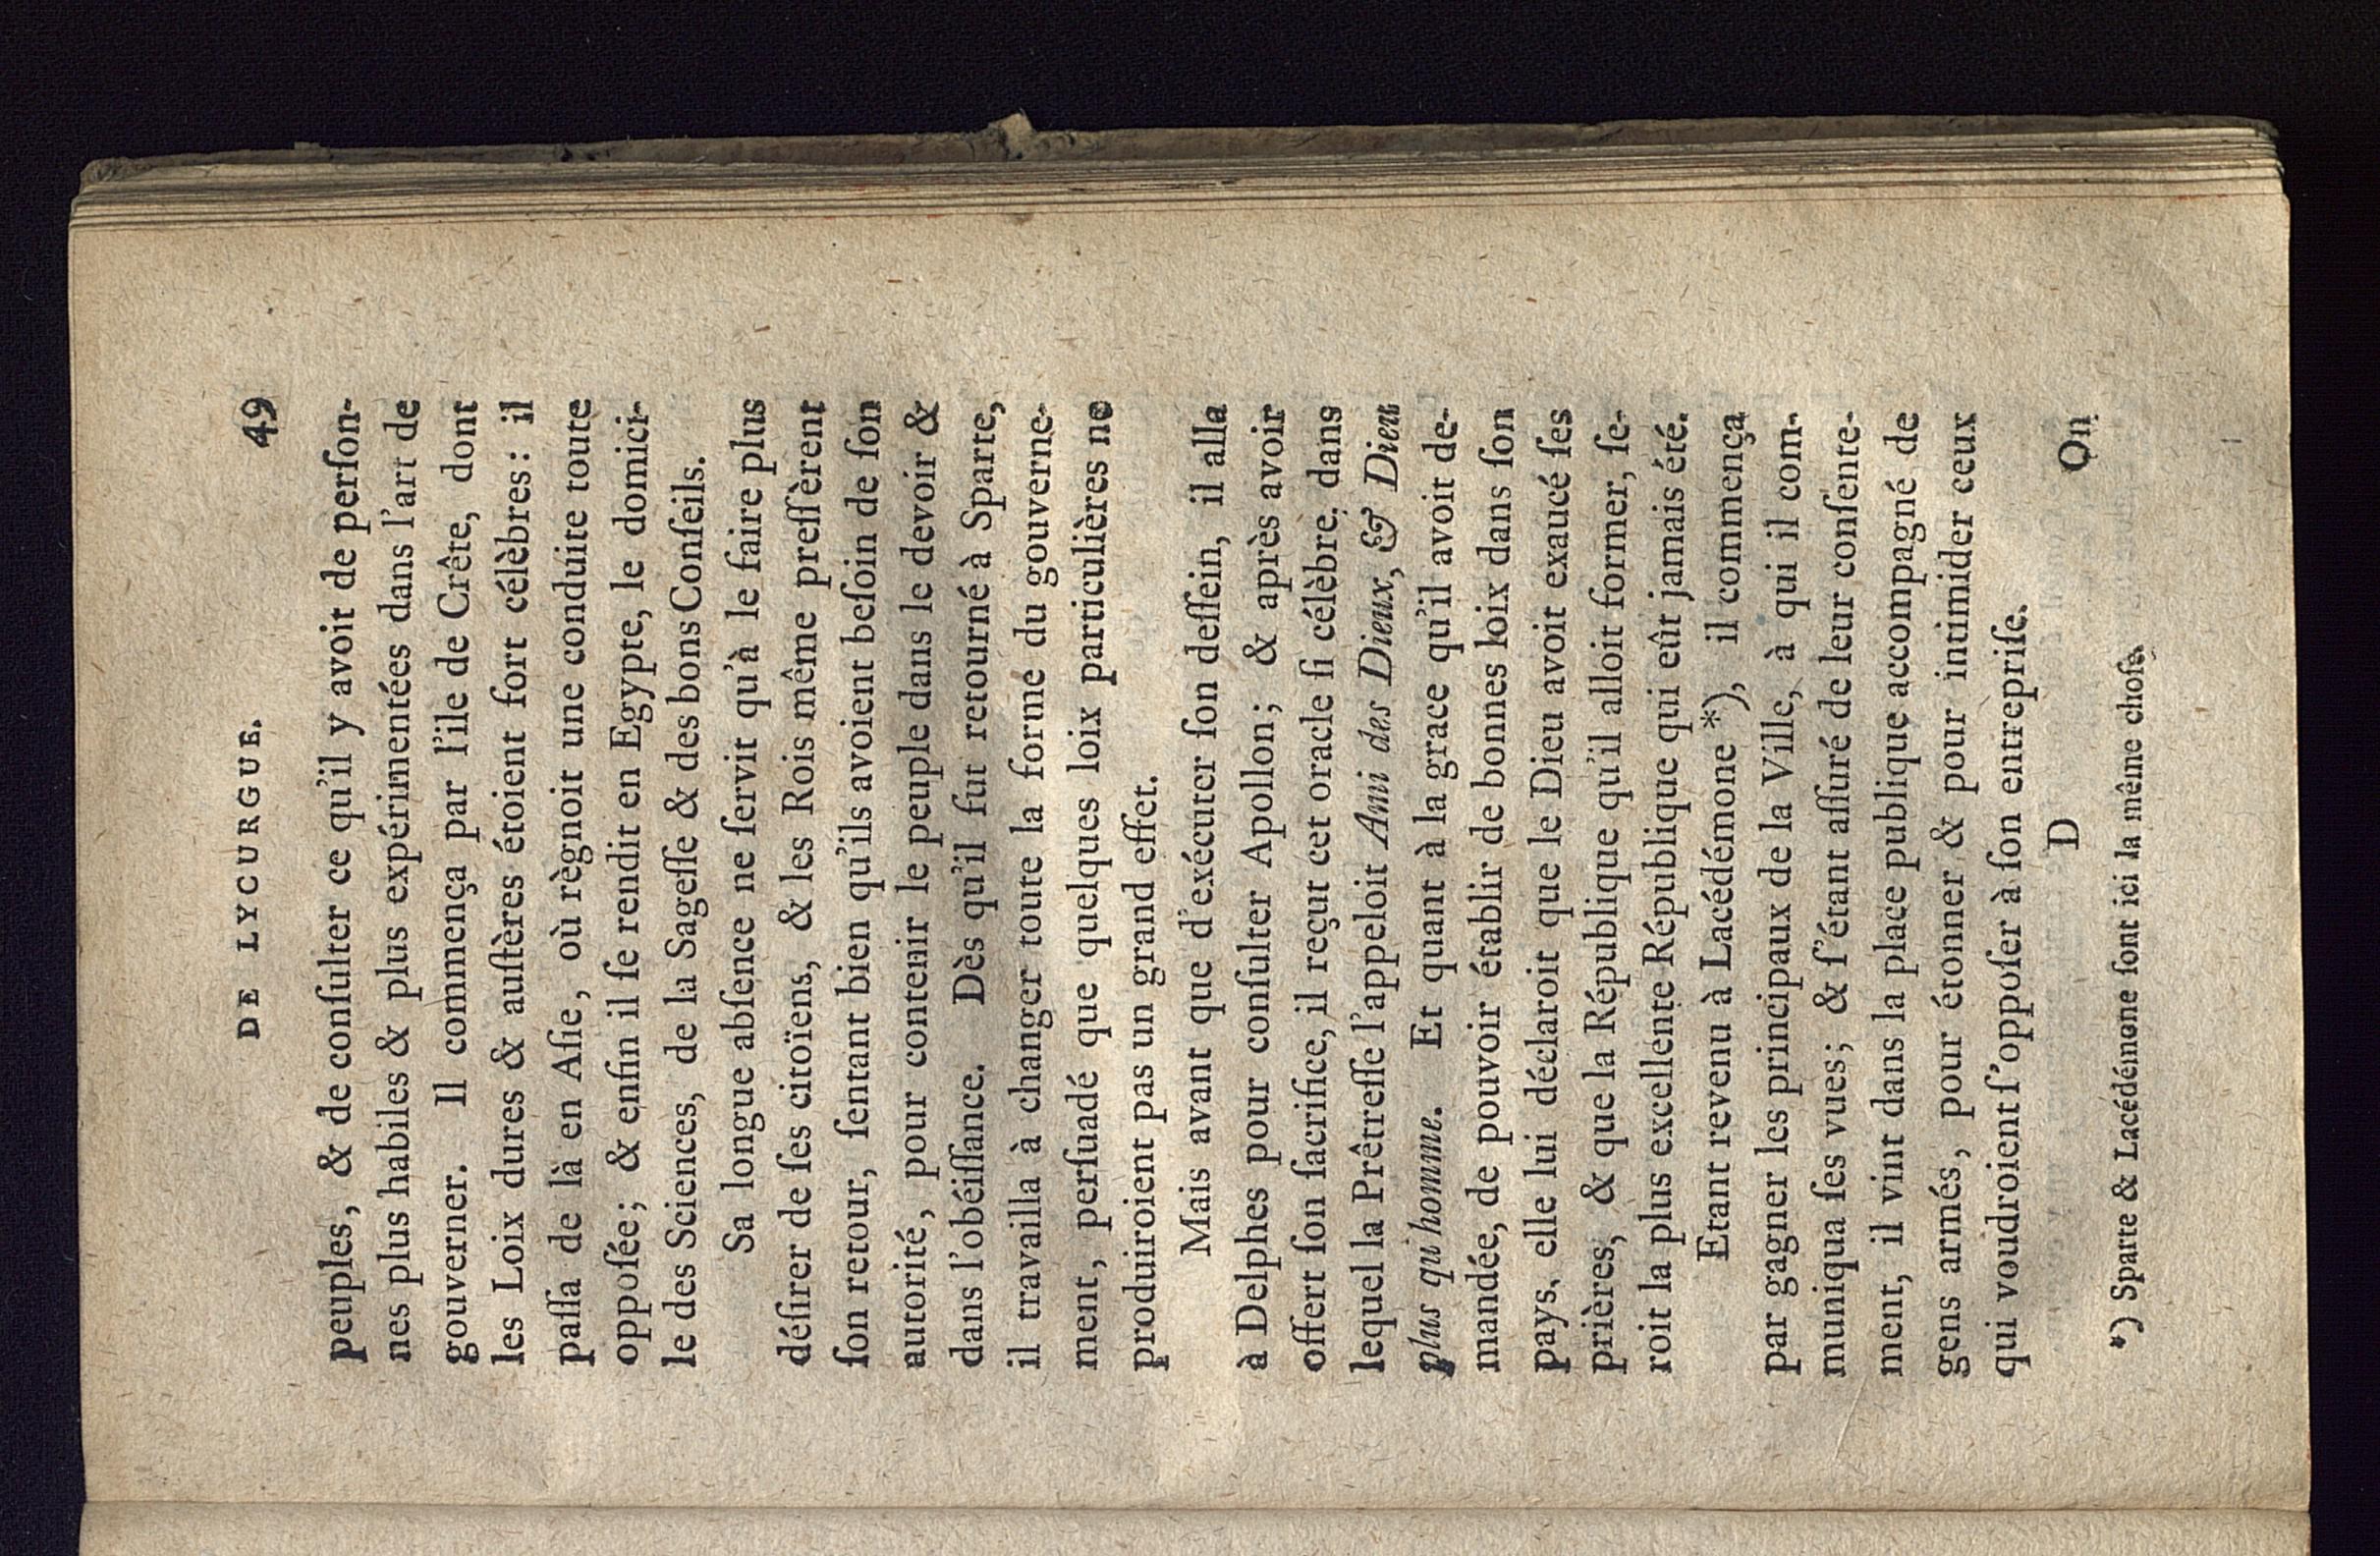 DE LYCURGUE. 49
peuples, & de conſulter ce qu'il y avoit de perſon-
nes plus habiles & plus expérimentées dans l'art de
gouverner. Il commença par l'ile de Crête, dont
les Loix dures & auſtères étoient fort célèbres: il
paſſa de là en Aſie, où règnoit une conduite toute
oppoſée; & enfin il ſe rendit en Egypte, le domici-
le des Sciences, de la Sageſſe & des bons Conſeils.
Sa longue abſence ne ſervit qu'à le faire plus
déſirer de ſes citoïens, & les Rois même preſſèrent
ſon retour, ſentant bien qu'ils avoient beſoin de ſon
autorité, pour contenir le peuple dans le devoir &
dans l'obéiſſance. Dès qu'il fut retourné à Sparte,
il travailla à changer toute la forme du gouverne-
ment, perſuadé que quelques loix particulières ne
produiroient pas un grand effet.
Mais avant que d'exécuter ſon deſſein, il alla
à Delphes pour conſulter Apollon; & après avoir
offert ſon ſacrifice, il reçut cet oracle ſi célèbre, dans
lequel la Prêtreſſe l'appeloit Ami des Dieux, & Dieu
plus qu'homme. Et quant à la grace qu'il avoit de-
mandée, de pouvoir établir de bonnes loix dans ſon
pays, elle lui déclaroit que le Dieu avoit exaucé ſes
prières, & que la République qu'il alloit former, ſe-
roit la plus excellente République qui eût jamais été.
Etant revenu à Lacédémone *), il commença
par gagner les principaux de la Ville, à qui il com-
muniqua ſes vues; & ſ'étant aſſuré de leur conſente-
ment, il vint dans la place publique accompagné de
gens armés, pour étonner & pour intimider ceux
qui voudroient ſ'oppoſer à ſon entrepriſe.
D On
*) Sparte & Lacédémone ſont ici la même choſe.